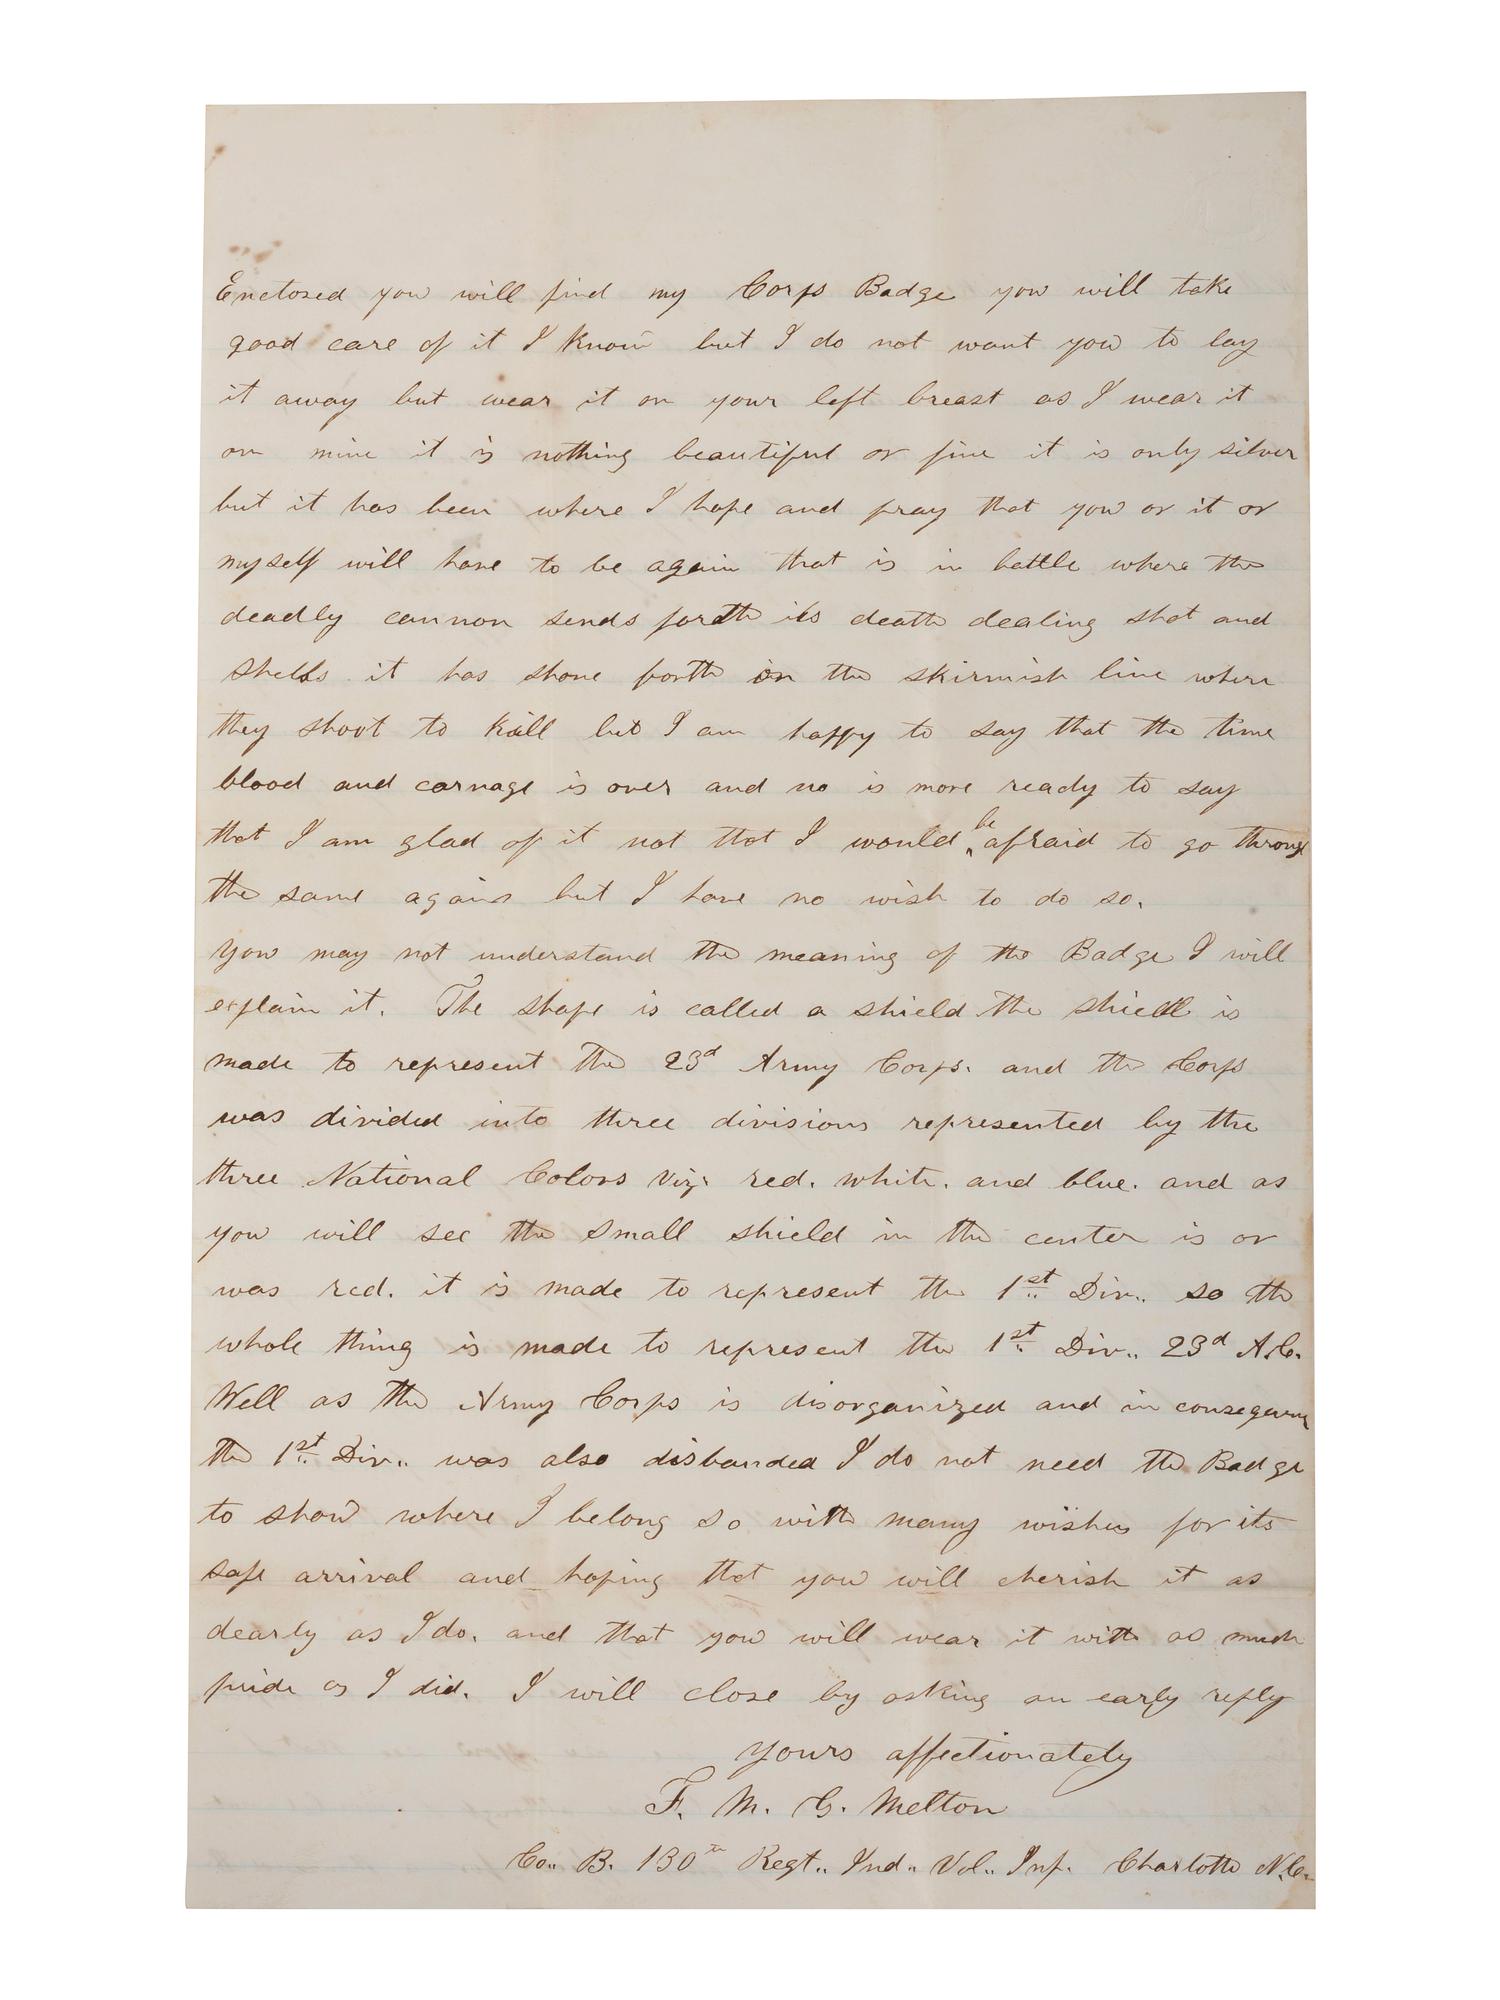 Enclosed you will find my Corps Badge you will take
good care of it I know but I do not want you to lay
it away but wear it on your left breast as I wear it
on mine it is nothing beautiful or fine it is only silver
but it has been where I hope and pray that you or it or
myself will have to be again that is in battle where the
deadly cannon sends forth its death dealing shot and
shells it has shone forth on the skirmish line where
they shoot to kill but I am happy to say that the time
blood and carnage is over and no is more ready to say
that I am glad of it not that I would be afraid to go through
the same again but I have no wish to do so.
You may not understand the meaning of the Badge I will
explain it. The shape is called a shield the shield is
made to represent the 23d Army Corps. and the Corps
was divided into three divisions represented by the
three National Colors viz: red. white. and blue. and as
you will see the small shield in the center is or
was red. it is made to represent the 1st Div.. so the
whole thing is made to represent the 1st Div.. 23d A.C.
Well as the Army Corps is disorganized and in
the 1st Div.. was also disbanded I do not need the Badge
to show where I belong so with many wishes for its
safe arrival and hoping that you will cherish it as
dearly as I do. and that you will wear it with as much
pride as I did. I will close by asking an early reply
Yours affectionately
F. M. G. Melton
Co.. B. 130th Regt.. Ind.. Vol.. Inf. Charlotte N.C.